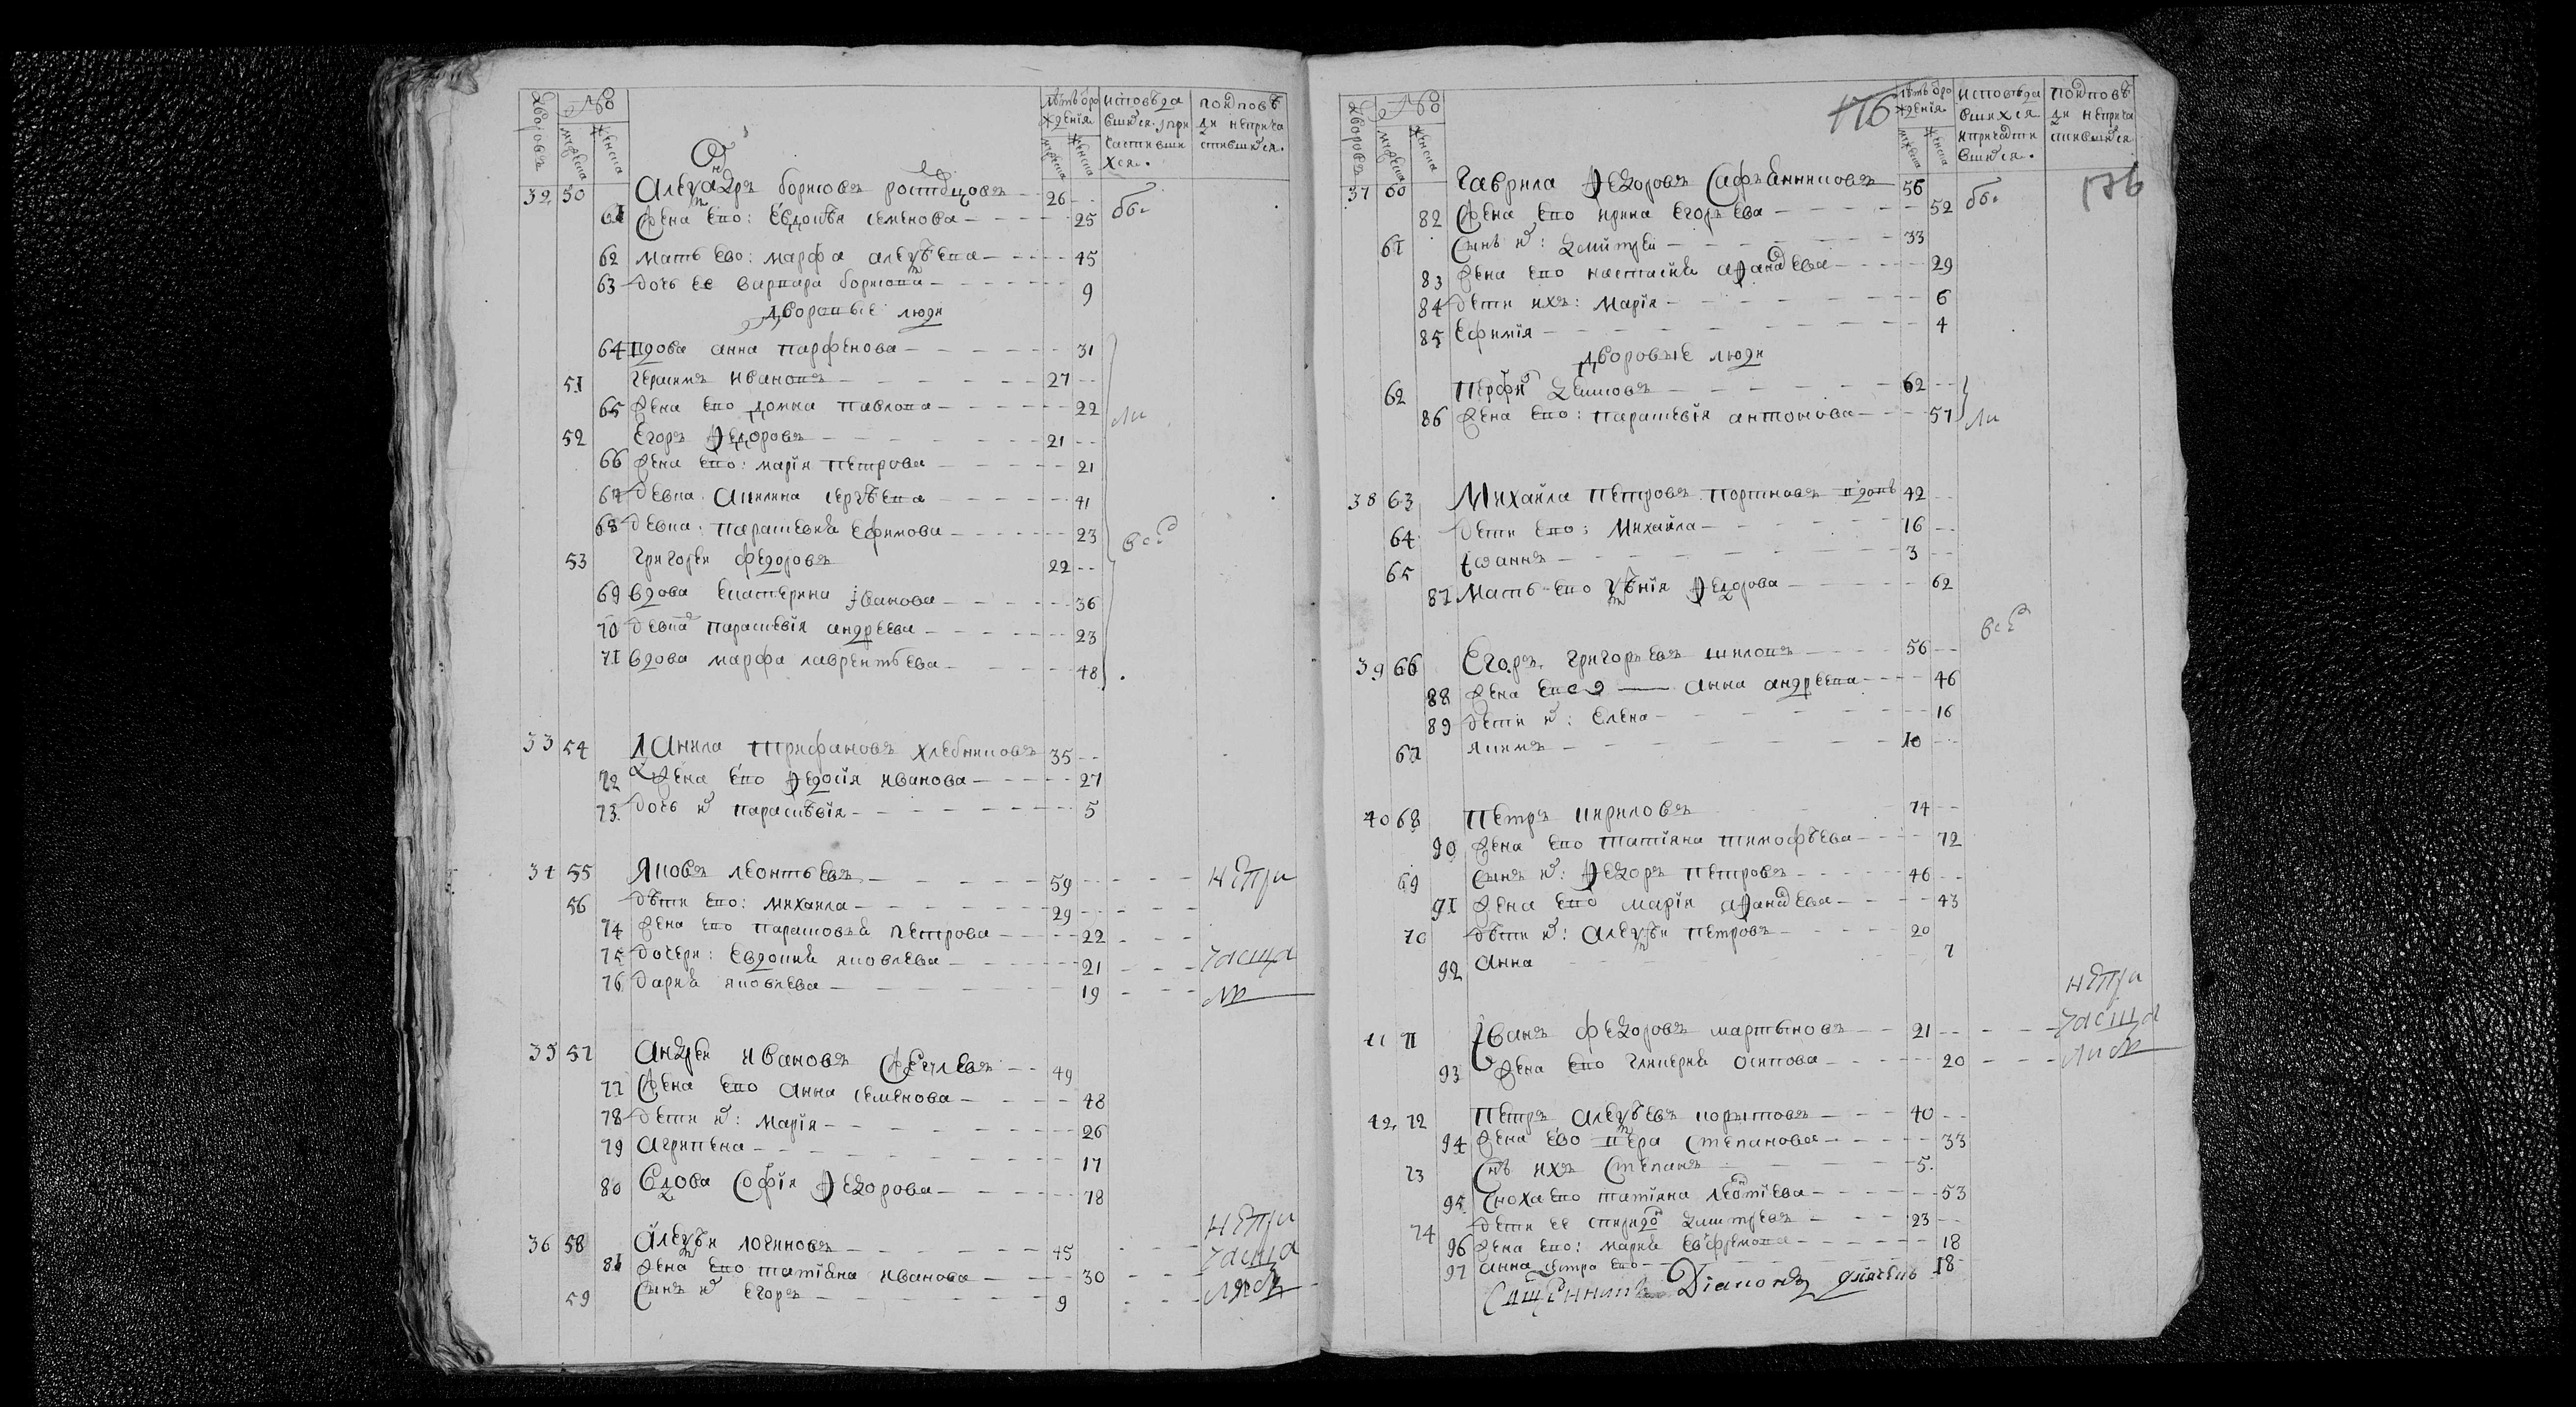 дворовъ № мужеска женска лѣтъ от рождения мужска женска исповѣдавшихся и причастившихся. по исповѣди непричастившихся.
32 50 Алеѯандръ борисовъ ростовцовъ 26
61 Жена ево: Евдокѣя семенова 25 обы
62 мать ево: марфа алеѯѣева 45
63 дочь ее варвара борисова 9
дворовые люди
64 вдова анна парфенова 31
51 Герасимъ ивановъ 27
65 жена ево домна павлова 22
ли
52 Егоръ Ѳедоровъ 21
66 жена ево: марія петрова 21
67 девка акилина сергѣева 41
68 девка: парасковія Ефимова 23
всѣ
53 Григореи федоровъ 22
69 вдова екатерина іванова 36
70 девка парасковія андреева 23
71 вдова марфа лаврентьева 48
33 54 данила трифановъ хлебниковъ 35
72 жена ево Ѳедосія иванова 27
73 дочь их парасковія 5
34 55 Яковъ леонтьевъ 59 непри
56 дѣти ево: михаила 29
74 жена ево парасковья петрова 22
75 дочери: Евдокия яковлева 21 часща
76 дарья яковлева 19 ли
35 57 Андреи ивановъ 49
77 Жена ево анна семенова 48
78 дети их: марія 26
79 Агрипена 17
80 Вдова Софія Ѳедорова 78
36 58 Алеѯѣи логиновъ 45 непри
81 жена ево татіяна иванова 30 часща
59 Сынъ их егоръ 9
дворовъ № мужеска женска лѣтъ от рождения мужска женска исповѣдавшихся и причастившихся. по исповѣди непричастившихся
176
176
37 60 Гаврила Ѳедоровъ Сафьянниковъ 56
82 Жена ево ирина Егорьева 52 обы
61 Сынъ их: дмитреи 33
83 жена ево настасия аѲанасева 29
84 дети ихъ: марія 6
85 Ефимія 4
дворовые люди
62 Перфи 62
86 жена ево: парасковія антонова 57 ли
38 63 Михаила петровъ портновъ вдовъ 42
64 дети ево: михаила 16
65 Іѡаннъ 3
87 Мать ево Ѯѣнія Ѳедорова 62
всѣ
39 66 Егоръ григорьевъ шиловъ 56
88 жена ево анна андреева 46
89 дети их: Елена 16
67 якимъ 10
40 68 Петръ кириловъ 74
90 жена ево татіяна тимофѣева 72
69 Сынъ их: Ѳедоръ петровъ 46
91 жена ево марія аѲанасева 43
70 дѣти их: алеѯѣи петровъ 20
92 анна 7
непри
41 71 Іванъ федоровъ мартыновъ 21 часща
93 жена ево гликерия осипова 20 лись
42 72 Петръ алеѯѣевъ корытовъ 40
94 жена ево вера степанова 33
73 Снъ ихъ Степанъ 5.
95 Сноха ево татіяна леонтіева 53
74 дети ее спиридо дмитревъ 23
96 жена ево: мария 18
97 анна сестра ево 18
Сщенникъ Діаконъ